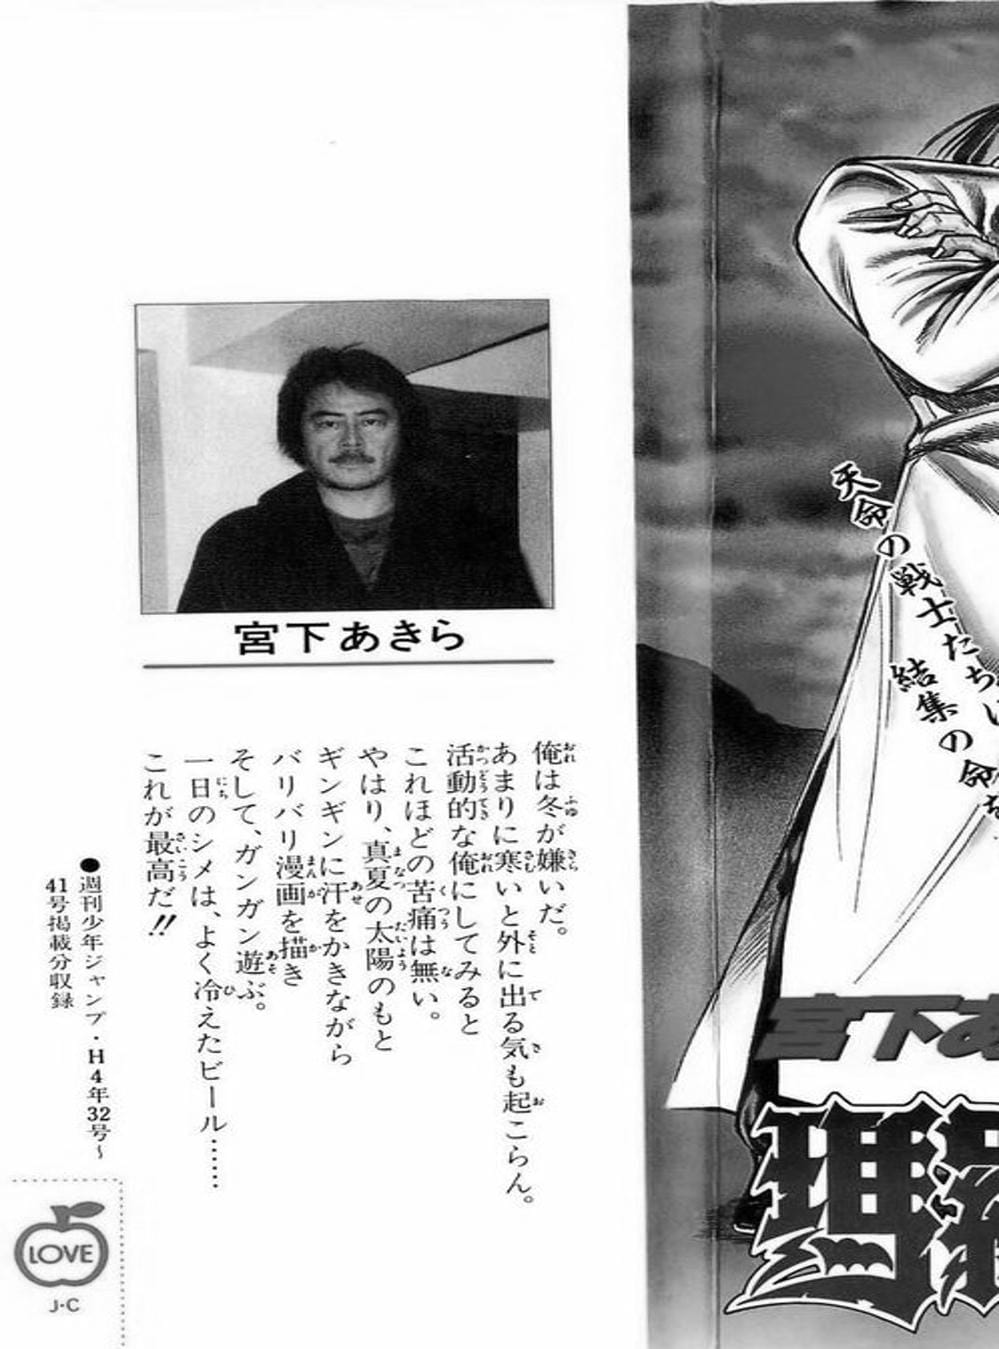 宮下あきら
俺は冬が嫌いだ。
あまりに寒いと外に出る気も起こらん。
活動的な俺にしてみると
これほどの苦痛は無い。
やはり、真夏の太陽のもと
ギンギンに汗をかきながら
バリバリ漫画を描き
そして、ガンガン遊ぶ。
一日のシメは、よく冷えたビール……
これが最高だ!!
●週刊少年ジャンプ・H4年32号~
41号掲載分収録
LOVE
J・C
天命の戦士たちに
結集の命を
宮下あ
瑪羅